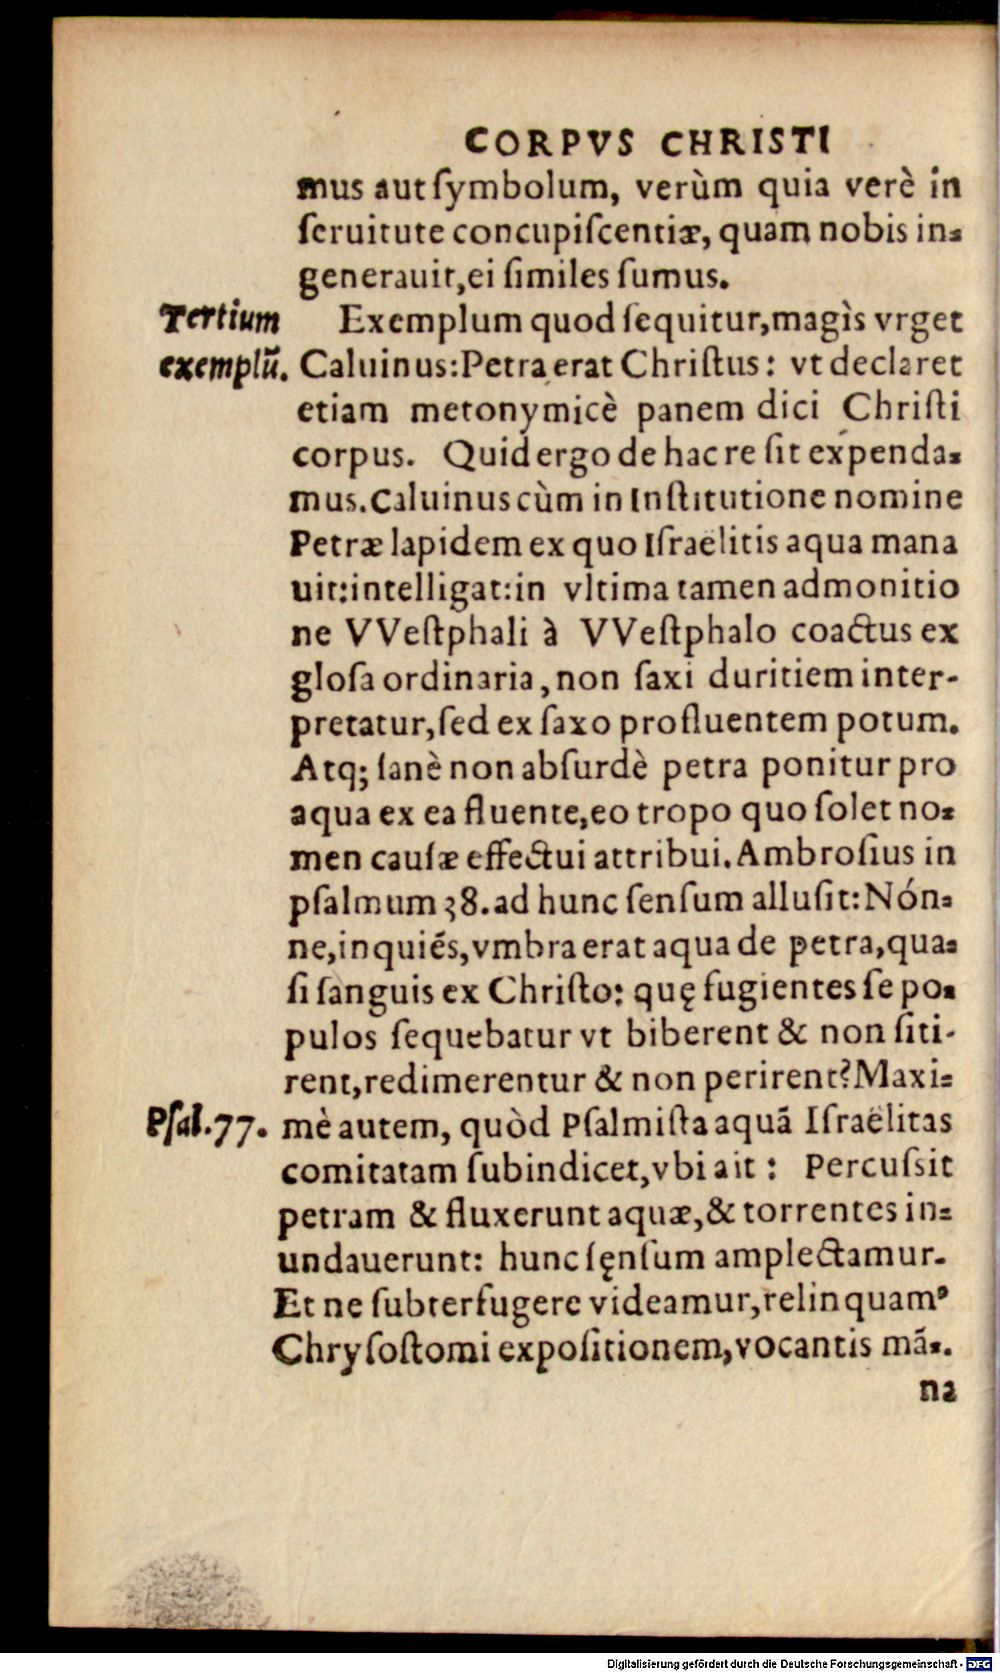 CORPVS CHRISTI
mus aut ſymbolum, verùm quia verè in
ſeruitute concupiſcentiæ, quam nobis in-
generauit, ei ſimiles ſumus.
Tertium
exemplū.
Exemplum quod ſequitur, magìs vrget
Caluinus: Petra erat Chriſtus: vt declaret
etiam metonymicè panem dici Chriſti
corpus. Quid ergo de hac re ſit expenda-
mus. Caluinus cùm in Inſtitutione nomine
Petræ lapidem ex quo Iſraëlitis aqua mana
uit: intelligat: in vltima tamen admonitio
ne VVeſtphali à VVeſtphalo coactus ex
gloſa ordinaria, non ſaxi duritiem inter-
pretatur, ſed ex ſaxo profluentem potum.
Atq; ſanè non abſurdè petra ponitur pro
aqua ex ea fluente, eo tropo quo ſolet no-
men cauſæ effectui attribui. Ambroſius in
pſalmum 38. ad hunc ſenſum alluſit: Nón-
ne, inquiẽs, vmbra erat aqua de petra, qua-
ſi ſanguis ex Chriſto: quę fugientes ſe po-
pulos ſequebatur vt biberent & non ſiti-
rent, redimerentur & non perirent? Maxi-
Pſal. 77.
mè autem, quòd Pſalmiſta aquã Iſraëlitas
comitatam ſubindicet, vbi ait: Percuſsit
petram & fluxerunt aquæ, & torrentes in-
undauerunt: hunc ſęnſum amplectamur.
Et ne ſubterfugere videamur, relinquamꝰ
Chryſoſtomi expoſitionem, vocantis mã-.
na
Digitalisierung gefördert durch die Deutsche Forschungsgemeinschaft - DFG